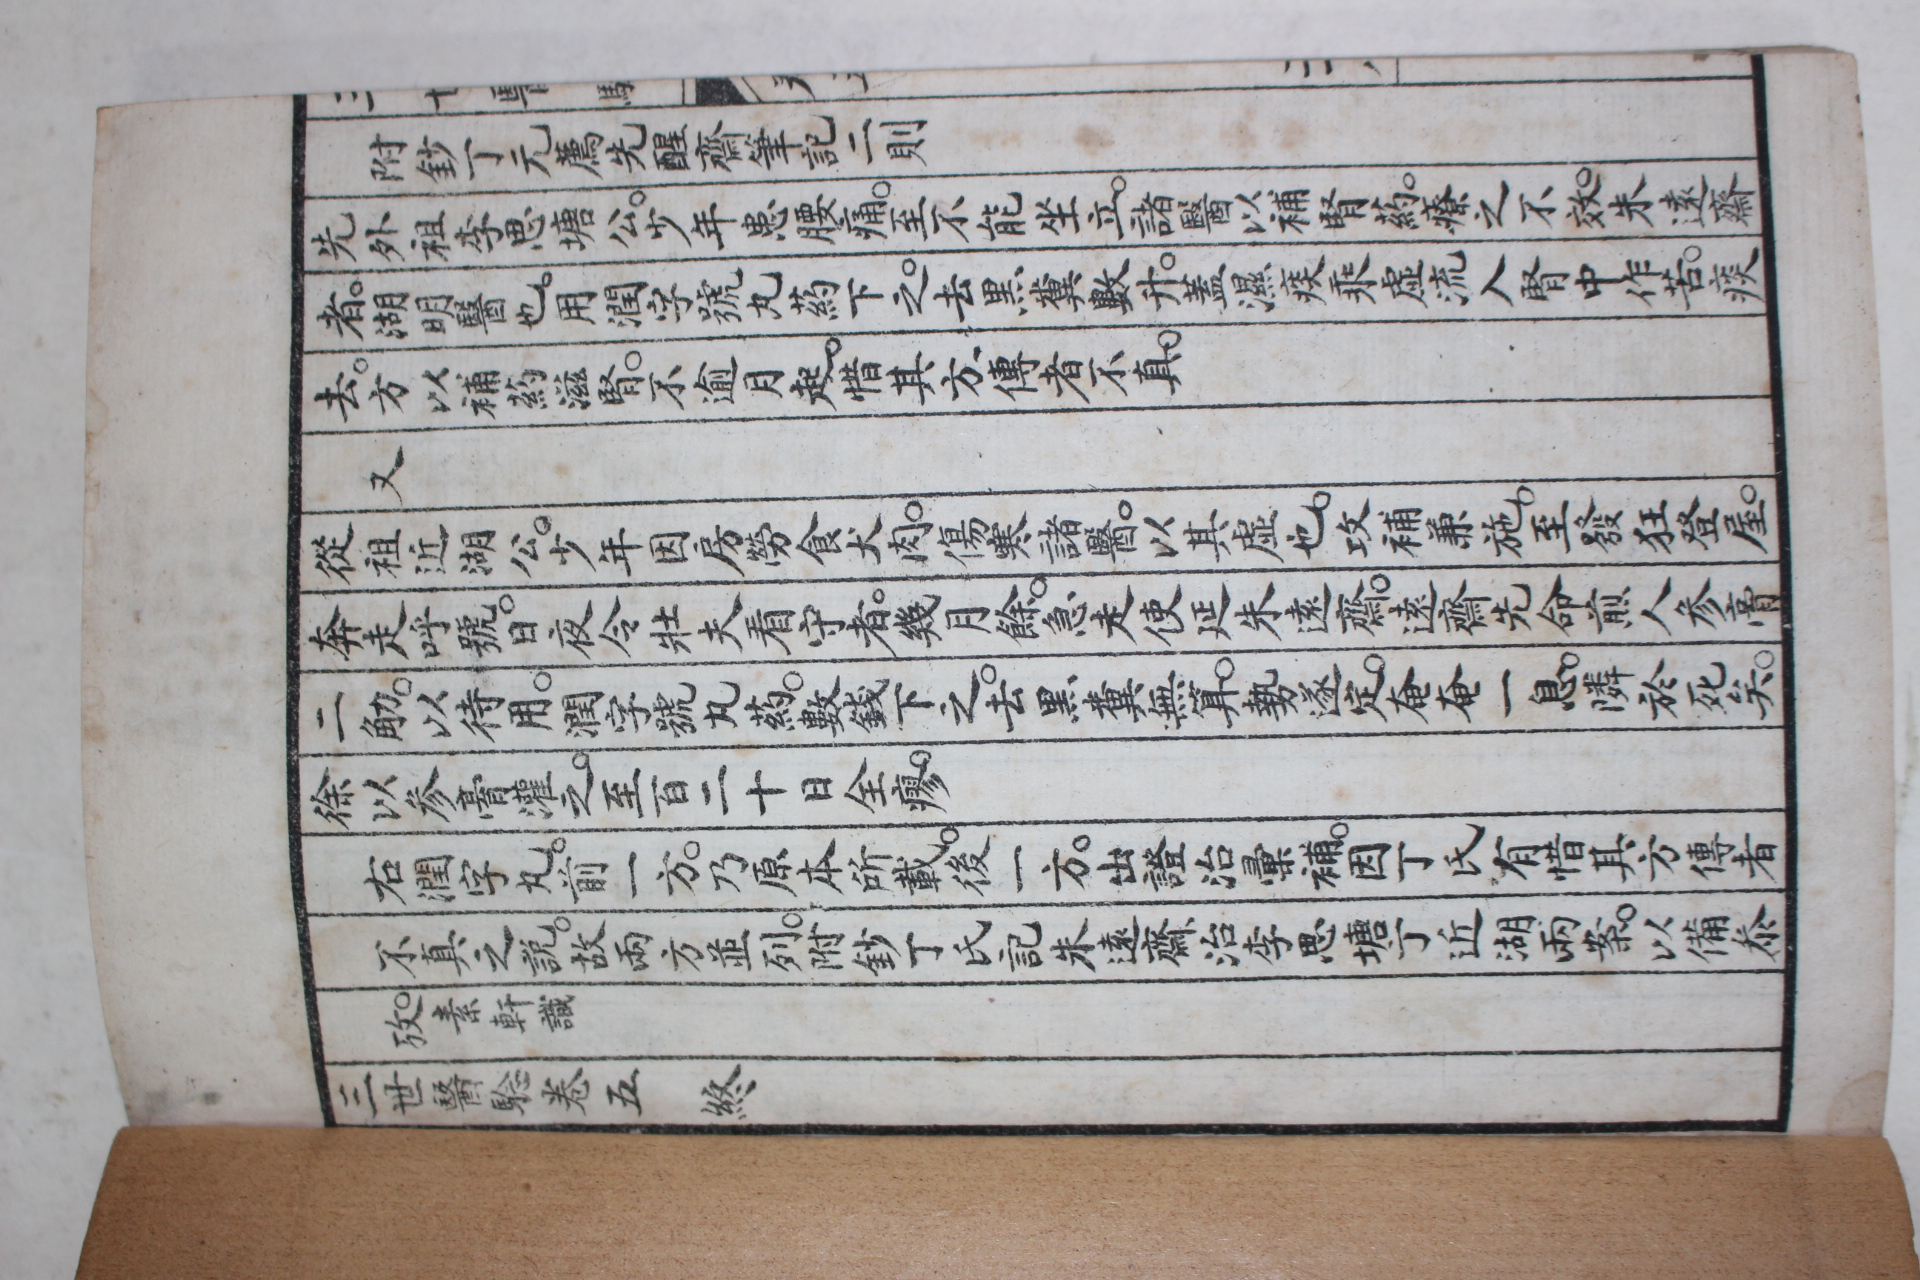 三世醫驗 卷五 二十八
附鈔丁元薦先醒齋筆記二則
先外祖李思塘公。少年患腰痛。至不能坐立。諸醫以補腎葯。療之不效。朱遠齋
者。湖明醫也。用潤字號丸葯下之。去黑糞數升。蓋濕痰乘虛流入腎中作苦。痰
去。方以補葯滋腎。不逾月起。惜其方、傳者不真。
又
從祖近湖公。少年因房勞食犬肉。傷寒諸醫。以其虛也。攻補兼施。至發狂登屋。
奔走呼號。日夜令壯夫看守者。幾月餘。急走使延朱遠齋。遠齋先命煎人參膏
二觔。以待用。潤字號丸葯。數錢下之。去黑糞無算。勢遂定。奄奄一息。隣於死矣。
徐以參膏灌之。至百二十日全瘳。
右潤字丸。前一方。乃原本所載。後一方。出證治彙補。因丁氏有惜其方傳者
不真之説。故兩方並列。附鈔丁氏記朱遠齋、治李思塘丁近湖兩案。以備叅
攷。素軒識
三世醫驗卷五 終